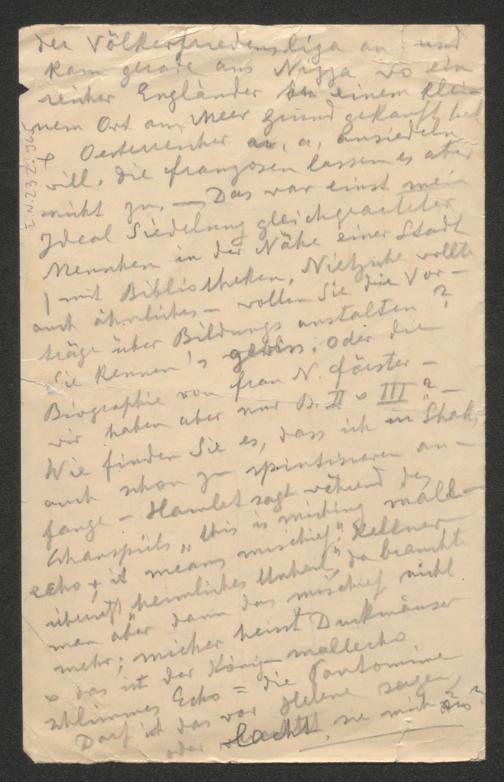 der Völkerfriedensliga an und
kam gerade aus Nizza wo ein
reicher Engländer an einem klei-
nem Ort am Meer Grund gekauft hat
+ Oesterreicher a. a. ansiedeln
will, die Franzosen lassen es aber
nicht zu. — Das war einst mein
Ideal Siedelung gleichgearteter
Menschen in der Nähe einer Stadt
mit Bibliotheken, Nietzsche wollte
auch ähnliches — wollen Sie die Vor-
träge über Bildungsanstalten?
Sie kennen's gewiss. Oder die
Biographie von Frau N. Förster —
wir haben aber nur B. II o III? —
Wie finden Sie es, dass ich in Shak.
auch schon zu spintisieren an-
fange — Hamlet sagt während des
Schauspiels „this is miching mall-
echo, it means mischief." Kellner
übersetzt heimliches Unheil, da brauchte
man aber dann das mischief nicht
mehr; micher heisst Duckmäuser
o das ist der König — mallecho
schlimmes Echo = die Pantomime
Darf ich das vor Helene sagen,
oder lacht sie mich aus?
I.N. 23